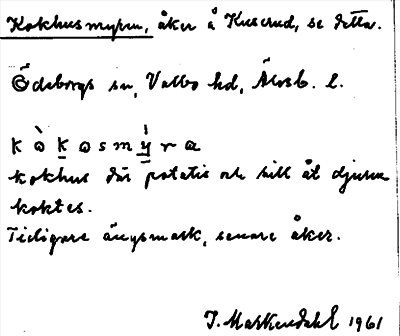 Kokhusmyren, åker å Kuserud, se detta.
Ödeborgs sn, Valbo hd, Älvsb. l.
kòkosmýra
kokhus där potatis och sill åt djuren
koktes.
Tidigare ängsmark, senare åker.
J. Markendahl 1961